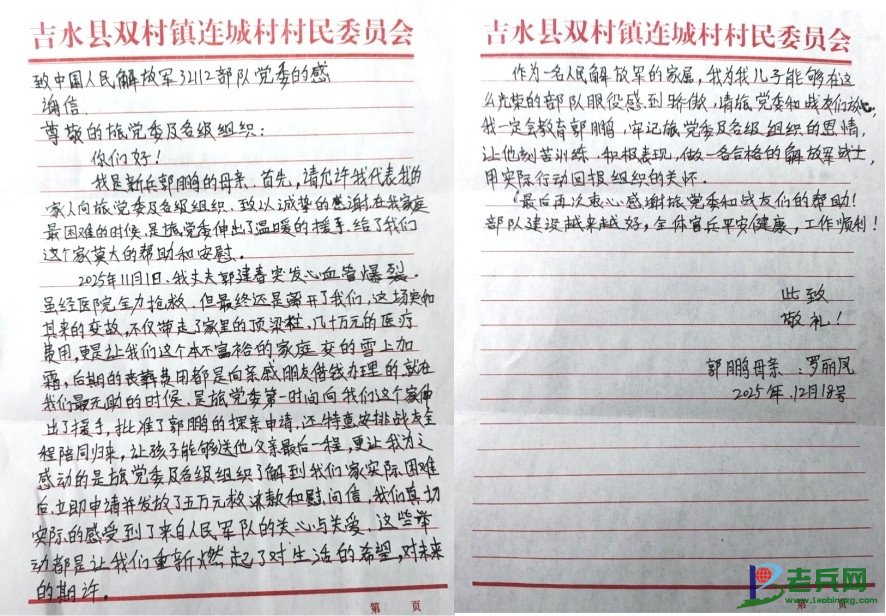 吉水县双村镇连城村村民委员会
致中国人民解放军32112部队党委的感
谢信
尊敬的旅党委及各级组织:
你们好!
我是新兵郭鹏的母亲.首先,请允许我代表我的
家人向旅党委及各级组织.致以诚挚的感谢!在我家庭
最困难的时候.是旅党委伸出了温暖的援手.给了我们
这个家莫大的帮助和安慰.
2025年11月1日.我丈夫郭建春突发心血管爆裂.
虽经医院全力抢救.但最终还是离开了我们,这场突如
其来的变故,不仅带走了家里的顶梁柱,几十万元的医疗
费用,更是让我们这个本不富裕的家庭变的雪上加
霜,后期的丧葬费用都是向亲戚朋友借钱办理的.就在
我们最无助的时候.是旅党委第一时间向我们这个家伸
出了援手,批准了郭鹏的探亲申请,还特意安排战友全
程陪同归来,让孩子能够送他父亲最后一程,更让我为之
感动的是旅党委及各级组织了解到我们家实际困难
后.立即申请并发放了五万元救济款和慰问信.我们真切
实际的感受到了来自人民军队的关心与关爱.这些举
动都是让我们重新燃起了对生活的希望,对未来
的期许.
第 页
吉水县双村镇连城村村民委员会
作为一名人民解放军的家属,我为我儿子能够在这
么光荣的部队服役感到骄傲,请旅党委和战友们放心,
我一定会教育郭鹏,牢记旅党委及各级组织的恩情,
让他刻苦训练.积极表现,做一名合格的解放军战士,
用实际行动回报组织的关怀.
最后再次衷心感谢旅党委和战友们的帮助!
部队建设越来越好,全体官兵平安健康,工作顺利!
此致
敬礼!
郭鹏母亲:罗丽凤
2025年.12月18号
第 页
老兵网
www.laobingzg.com